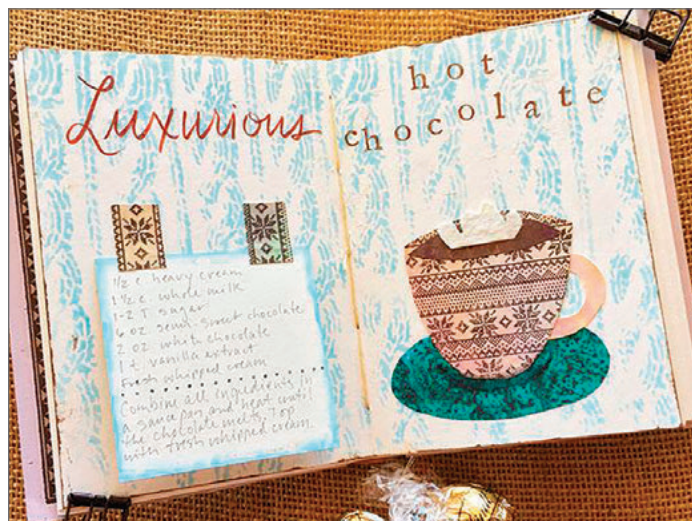 Luxurious
hot
chocolate
1/2 c heavy cream
1 1/2 c. whole milk
1-2 T sugar
6 oz semi-sweet chocolate
2 oz white chocolate
1 t vanilla extract
Fresh whipped cream
Combine all ingredients in
a sauce pan and heat until
the chocolate melts. Top
with fresh whipped cream.